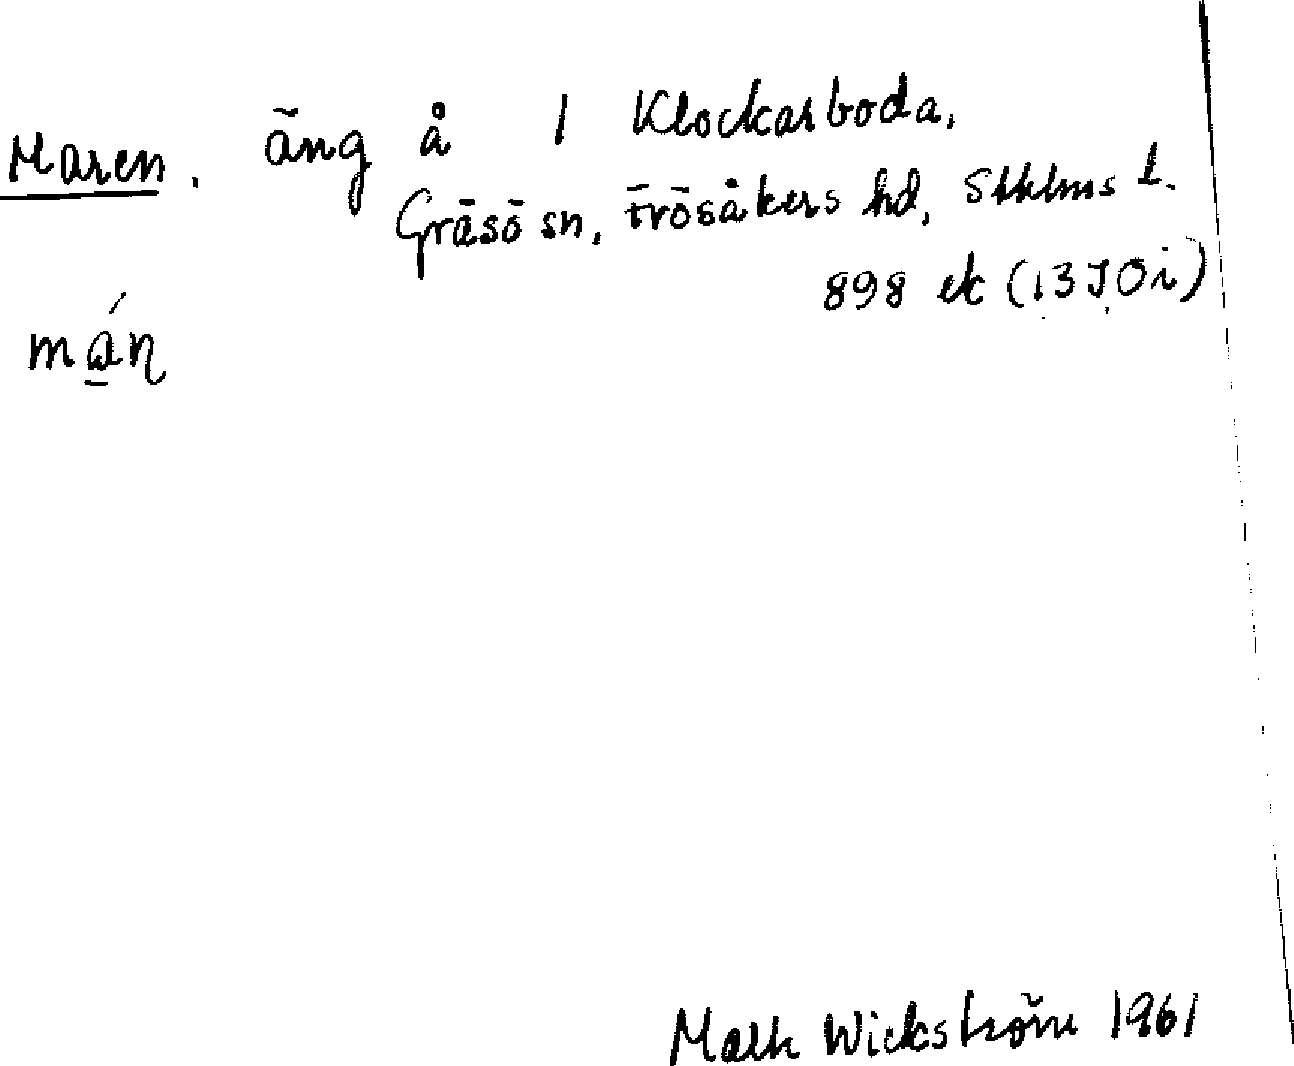 Maren. äng å 1 Klockarboda,
Gräsö sn, Frösåkers hd, Sthlms l.
898 ek (13J0i)
mán
Wickström 1961